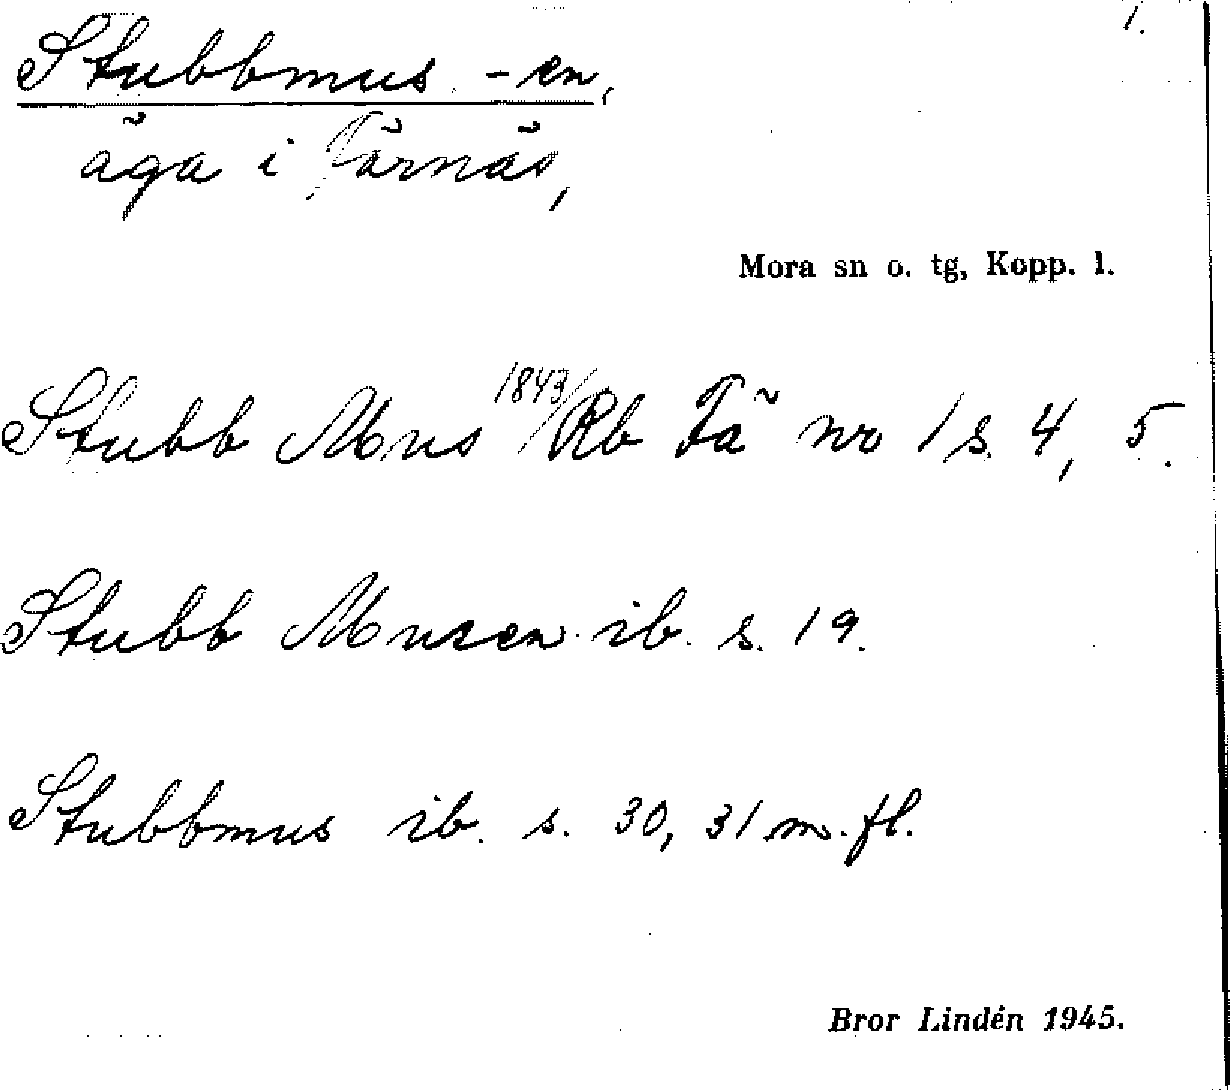 1.
Stubbmus -en,
äga i Färnäs,
Mora sn o. tg, Kopp. l.
Stubb Mus 1843/Rb Fä nr 1 s. 4, 5.
Stubb Musen ib. s. 19.
Stubbmus ib. s. 30, 31 m. fl.
Bror Lindén 1945.